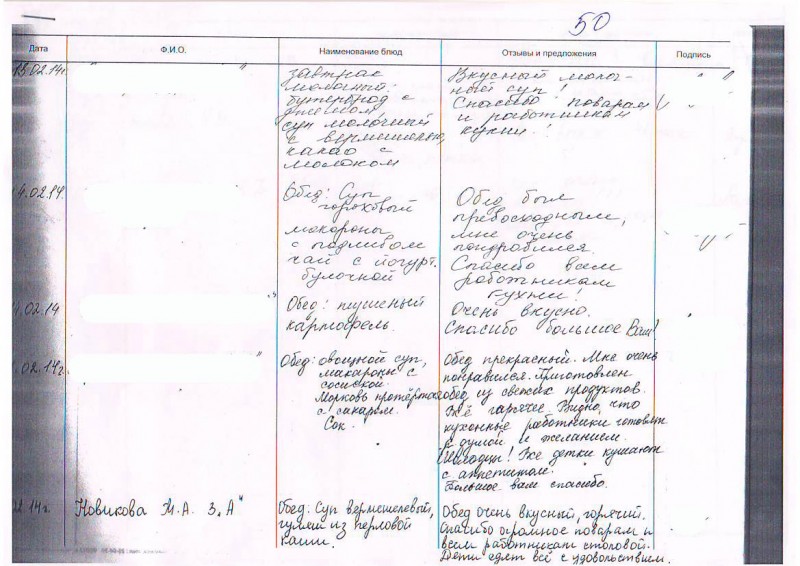 50
Дата Ф.И.О. Наименование блюд Отзывы и предложения Подпись
13.02.14г. Завтрак Вкусный молоч-
молочный: ный суп!
бутерброд с Спасибо поварам
джемом, и работникам
суп молочный кухни!
с вермешелью,
какао с
молоком
14.02.14. Обед: Суп Обед был
гороховый превосходным,
макароны мне очень
с подливом пондробился.
чай с йогурт. Спасибо всем
булочной работникам
кухни!
4.02.14 Обед: тушеный Очень вкусно.
картофель. Спасибо большое Вам!
.02.14г. Обед: овощной суп, Обед прекрасный. Мне очень
макароны с понравился. Приготовлен
сосиской. обед из свежих продуктов.
Морковь протёртая Всё гарячее. Видно, что
с сахаром. кухонные работники готовят
Сок. с думой и желанием.
Молодцы! Все детки кушают
с аппетитом.
Большое вам спасибо.
14г. Новикова М.А. 3„А" Обед: Суп вермешелевый, Обед очень вкусный, горячий.
гуляш из перловой Спасибо огромное поварам и
каши. всем работникам столовой.
Дети едят всё с удовольствием.